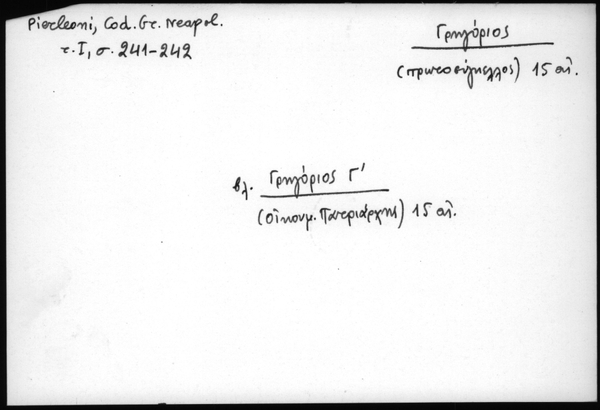 Pierleoni, Cod. Gr. Neapol.
τ. I, σ. 241-242
Γρηγόριος
(πρωτοσύγκελλος) 15 αἰ.
βλ. Γρηγόριος Γ'
(οἰκουμ. Πατριάρχης) 15 αἰ.